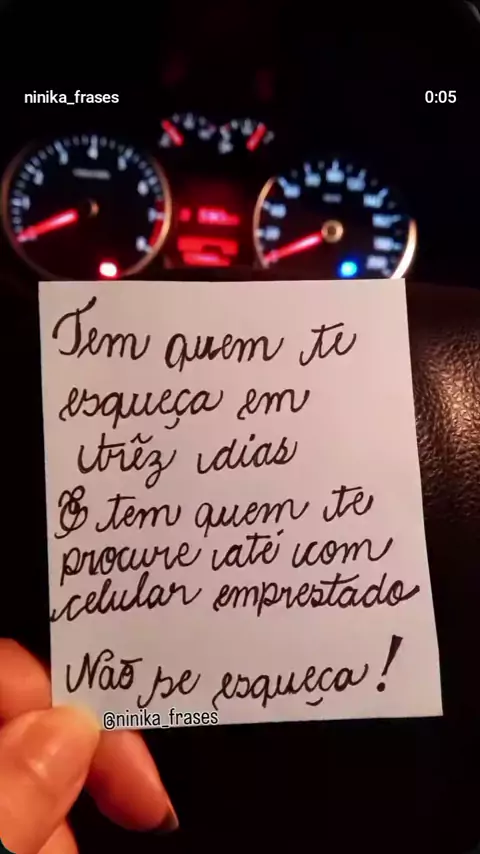 ninika_frases
0:05
Tem quem te
esqueça em
trêz dias
E tem quem te
procure até com
celular emprestado
Não se esqueça!
@ninika_frases